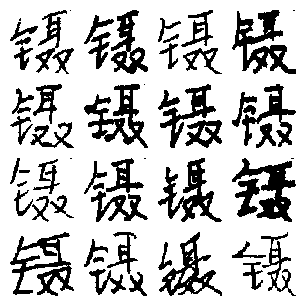 镊镊镊镊
镊镊镊镊
镊镊镊镊
镊镊镊镊